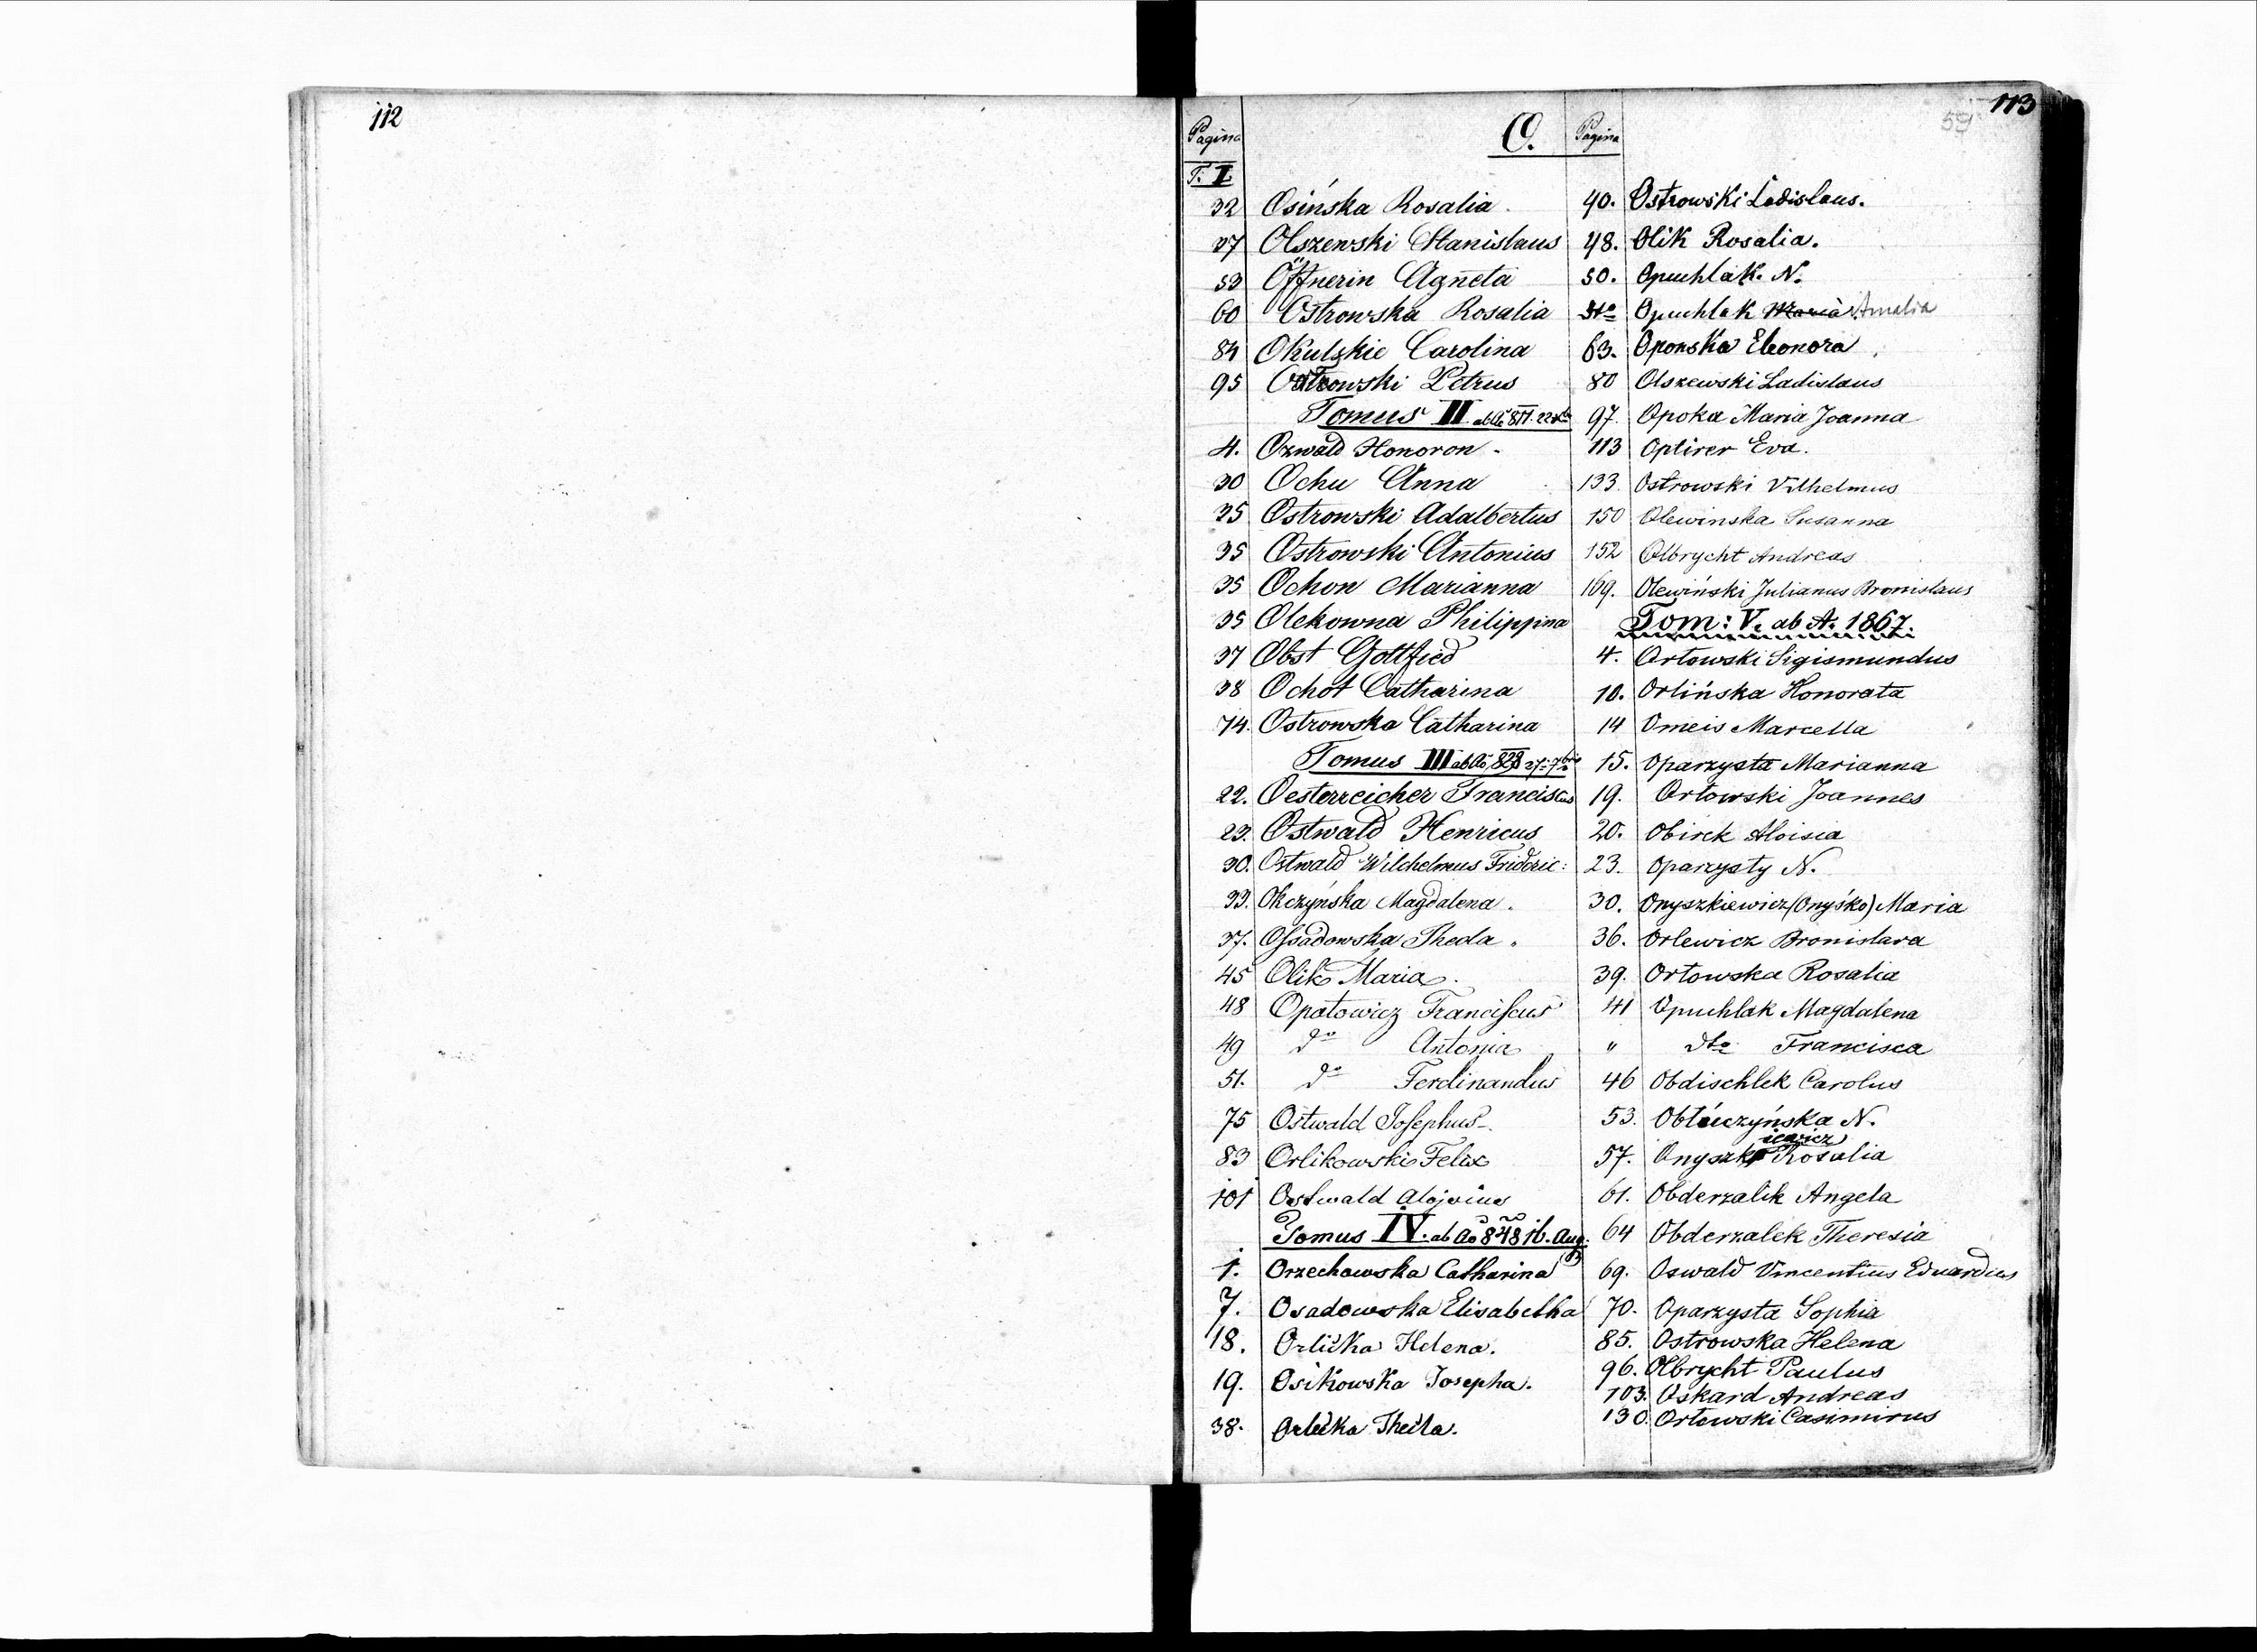 112
113
59
Pagina
O.
Pagina
T. I
32 Osińska Rosalia
37 Olszewski Stanislaus
53 Öffnerin Agneta
60 Ostrowska Rosalia
84 Okulskie Carolina
95 Ostrowski Petrus
Tomus II ab Ao 811. 22
4. Ozwald Honoron
30 Ochu Anna
35 Ostrowski Adalbertus
35 Ostrowski Antonius
35 Ochon Marianna
35 Olekowna Philippina
37 Obst Gottfied
38 Ochot Catharina
74. Ostrowska Catharina
Tomus III ab Ao 828 27 7bris
22. Oesterreicher Franciscus
23. Ostwald Henricus
30. Ostwald Wilchelmus Frideric:
33. Okczyńska Magdalena.
37. Ossadowska Theda.
45 Olik Maria.
48 Opatowicz Franciscus
49 do Antonia
51. do Ferdinandus
75 Ostwald Josephus
83 Orlikowski Felix
101 Ostwald Alojsius
Tomus IV. ab Ao 848 16. Aug:
1. Orzechowska Catharina
7. Osadowska Elisabetha
18. Orlička Helena.
19. Osikowska Josepha.
38. Orlička Thecla.
40. Ostrowski Ladislaus.
48. Olik Rosalia.
50. Opuchlak. N.
dto Opuchlak Maria Amalia
63. Oponska Eleonora
80 Olszewski Ladislaus
97. Opoka Maria Joanna
113 Optirer Eva.
133. Ostrowski Vilhelmus
150 Olewinska Susanna
152 Olbrycht Andreas
169. Olewiński Julianus Bronislaus
Tom: V. ab A. 1867.
4. Orłowski Sigismundus
10. Orlińska Honorata
14 Omeis Marcella
15. Oparzysta Marianna
19. Orłowski Joannes
20. Obirek Aloisia
23. Oparzysty N.
30. Onyszkiewicz (Onyśko) Maria
36. Orlewicz Bronislava
39. Orłowska Rosalia
41 Opuchlak Magdalena
" dto Francisca
46 Obdischlek Carolus
53. Obłuczyńska N.
iewicz
57. Onyszko Rosalia
61. Obderzalik Angela
64 Obderzalek Theresia
69. Oswald Vincentius Eduardus
70. Oparzysta Sophia
85. Ostrowska Helena
96. Olbrycht Paulus
103. Oskard Andreas
130. Orłowski Casimirus